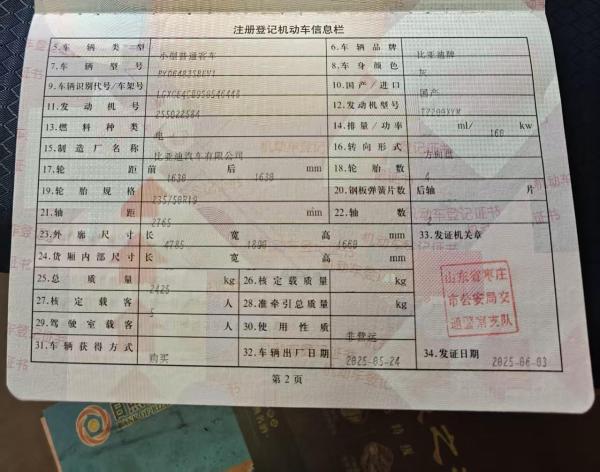 注册登记机动车信息栏
5.车辆类型 小型普通客车 6.车辆品牌 比亚迪牌
7.车辆型号 8.车身颜色 灰
9.车辆识别代号/车架号 10.国产/进口 国产
11.发动机号 255022584 12.发动机型号 TZ200XYM
13.燃料种类 电 14.排量/功率 ml/ 160 kw
15.制造厂名称 比亚迪汽车有限公司 16.转向形式 方向盘
17.轮距 前 1630 后 1630 mm 18.轮胎数 4
19.轮胎规格 235/50R19 20.钢板弹簧片数 后轴 片
21.轴距 2765 mm 22.轴数 2
23.外廓尺寸 长 4785 宽 1890 高 1660 mm 33.发证机关章
24.货厢内部尺寸 长 宽 高 mm
25.总质量 2425 kg 26.核定载质量 kg
27.核定载客 5 人 28.准牵引总质量 kg
29.驾驶室载客 人 30.使用性质 非营运
31.车辆获得方式 购买 32.车辆出厂日期 2025-05-24 34.发证日期 2025-06-03
山东省枣庄
市公安局交
通警察支队
第2页